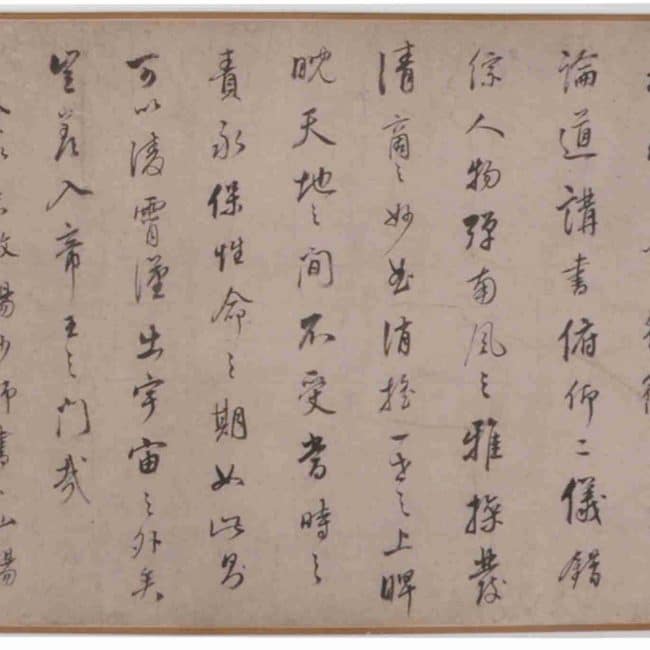 論道講書俯仰二儀錯
綜人物彈南風之雅操發
清商之妙曲消搖一世之上睥
睨天地之間不受當時之
責永保性命之期如此則
可以陵霄漢出宇宙之外矣
豈羨入帝王之門哉